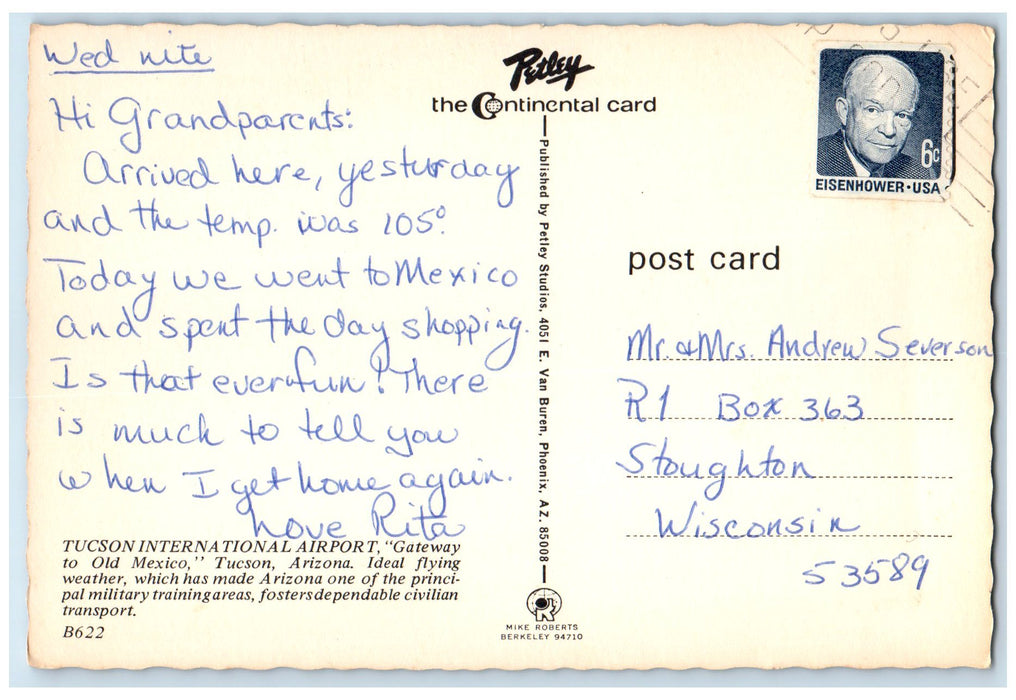 Wed nite
Hi Grandparents:
Arrived here, yesturday
and the temp. was 105°.
Today we went to Mexico
and spent the day shopping.
Is that ever fun! There
is much to tell you
when I get home again.
Love Rita
TUCSON INTERNATIONAL AIRPORT, "Gateway
to Old Mexico," Tucson, Arizona. Ideal flying
weather, which has made Arizona one of the princi-
pal military training areas, fosters dependable civilian
transport.
B622
Petley
the Continental card
Published by Petley Studios, 4051 E. Van Buren, Phoenix, AZ. 85008
MIKE ROBERTS
BERKELEY 94710
6c
EISENHOWER·USA
post card
Mr. & Mrs. Andrew Severson
R1 Box 363
Stoughton
Wisconsin
53589